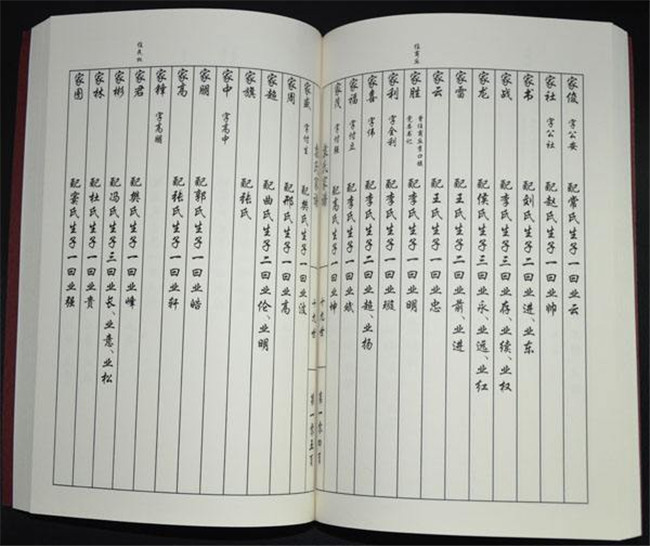 家俊 字公安 配常氏生子一曰业云
家社 字公社 配赵氏生子一曰业帅
家书 配刘氏生子二曰业进、业东
家战 配李氏生子三曰业存、业续、业权
家龙 配侯氏生子三曰业永、业远、业红
家雷 配王氏生子二曰业前、业进
家云 配王氏生子一曰业忠
住商丘
家胜 曾任商丘李口镇
党委书记 配李氏生子一曰业明
家利 字全利 配李氏生子一曰业瑕
家喜 字伟 配李氏生子二曰业超、业扬
家福 字付立 配李氏生子一曰业斌
家茂 字付强 配高氏生子一曰业坤
十九世 第一零四页
十九世 第一零五页
家盛 字付生 配樊氏生子一曰业波
家周 配邢氏生子一曰业高
家超 配曲氏生子二曰业伦、业明
家旗 配张氏
家中 字高中
家朋 配郭氏生子一曰业皓
家高 配张氏生子一曰业轩
家锋 字高朋
住民权
家君 配樊氏生子一曰业峰
家彬 配冯氏生子三曰业长、业意、业松
家林 配杜氏生子一曰业贵
家囤 配窦氏生子一曰业强